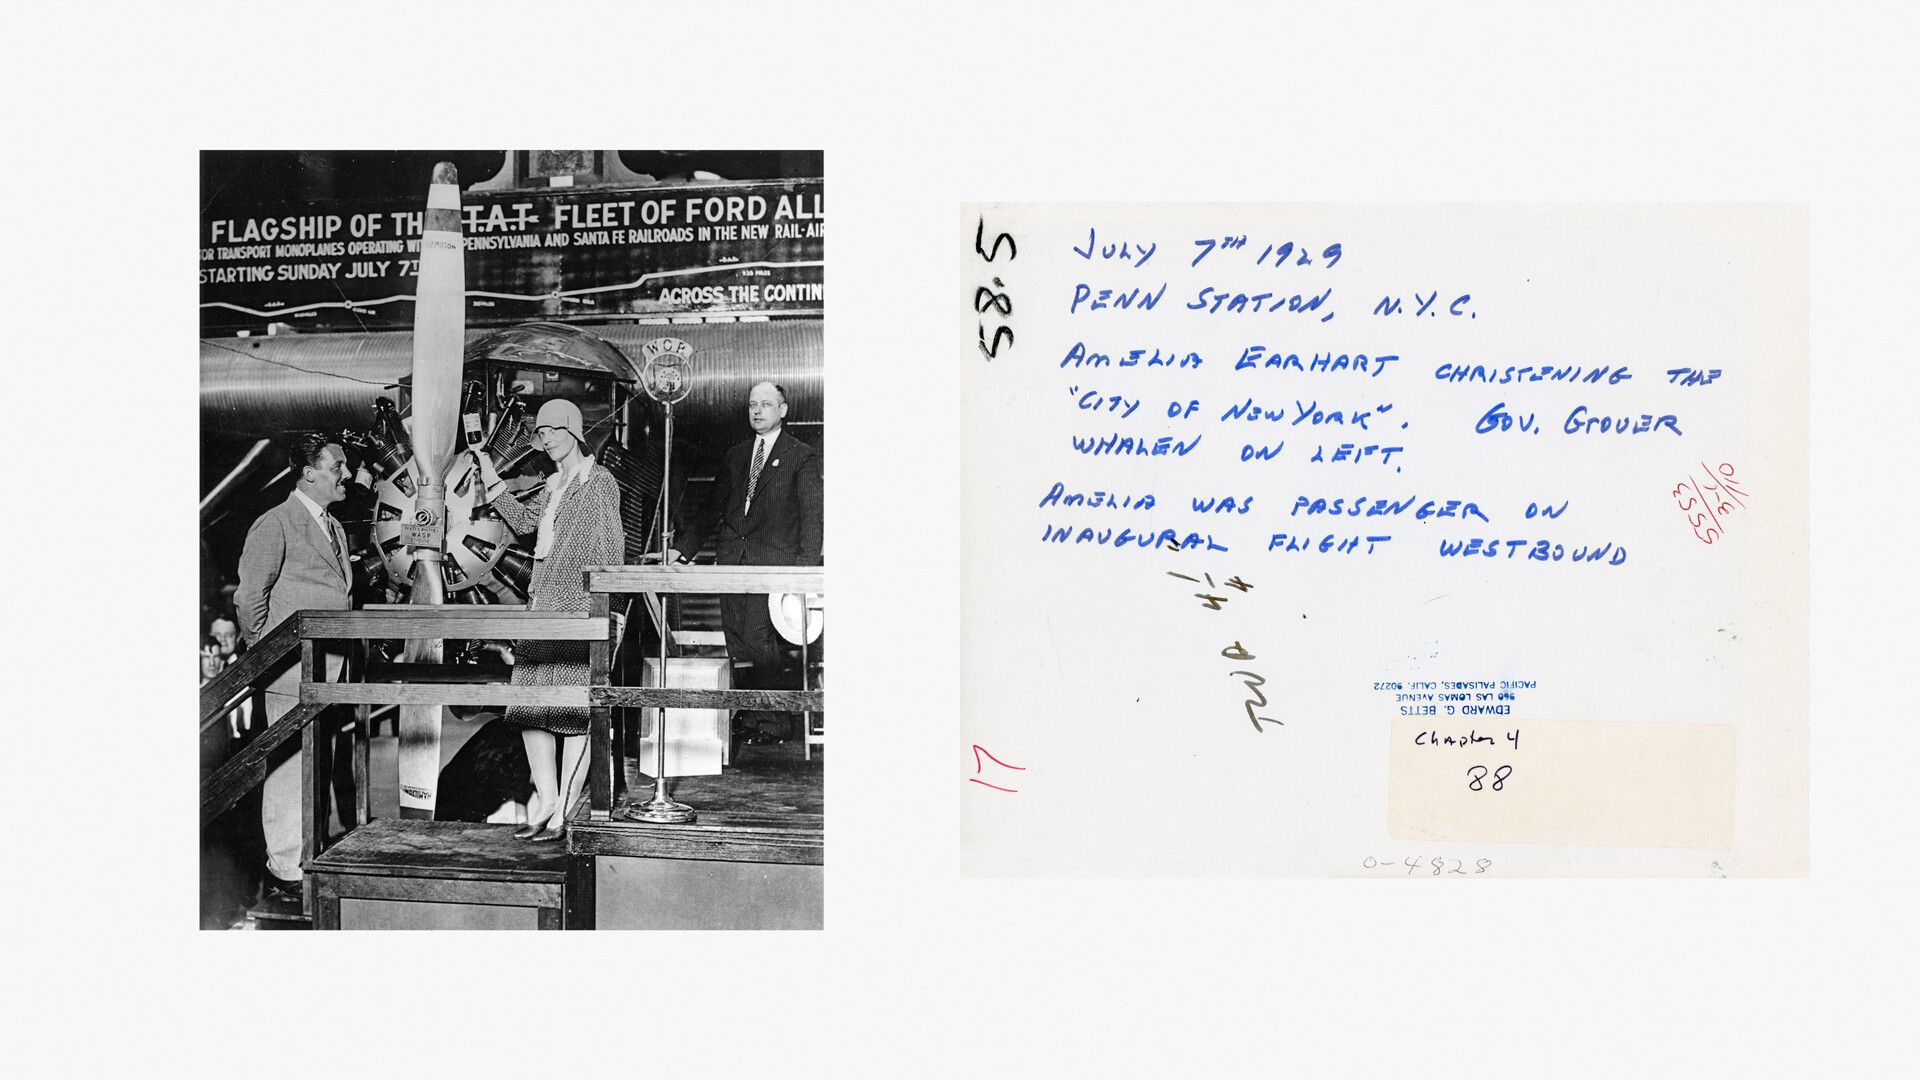 FLAGSHIP OF TH T.A.T FLEET OF FORD ALL
OR TRANSPORT MONOPLANES OPERATING WI PENNSYLVANIA AND SANTA FE RAILROADS IN THE NEW RAIL-AIR
STARTING SUNDAY JULY 7T
ACROSS THE CONTIN
HAMILTON
WASP
HAMILTON
58.5
JULY 7TH 1929
PENN STATION, N.Y.C.
AMELIA EARHART CHRISTENING THE
"CITY OF NEW YORK". GOV. GROVER
WHALEN ON LEFT.
AMELIA WAS PASSENGER ON
INAUGURAL FLIGHT WESTBOUND
TWA 4-4
17
EDWARD G. BETTS
960 LAS LOMAS AVENUE
PACIFIC PALISADES, CALIF. 90272
Chapter 4
88
0-4828